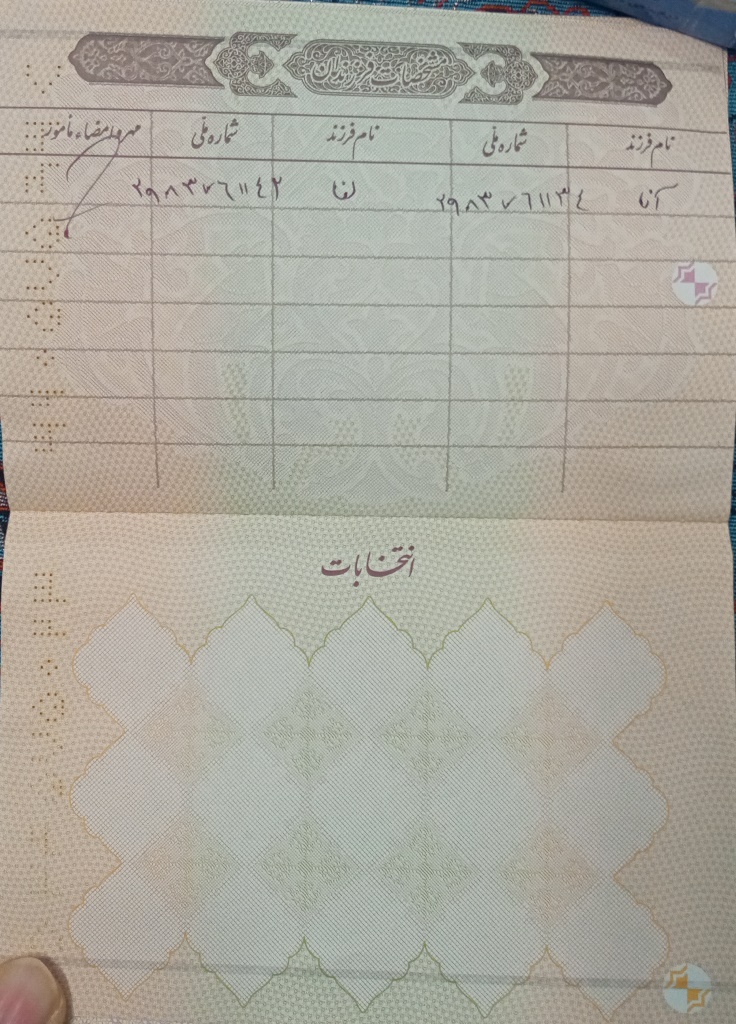 مشخصات فرزندان
نام فرزند شماره ملّی نام فرزند شماره ملّی مهر و امضاء مأمور
آنا ۲۹۸۳۷۶۱۱۳۴ لفا ۲۹۸۳۷۶۱۱۴۲
انتخابات